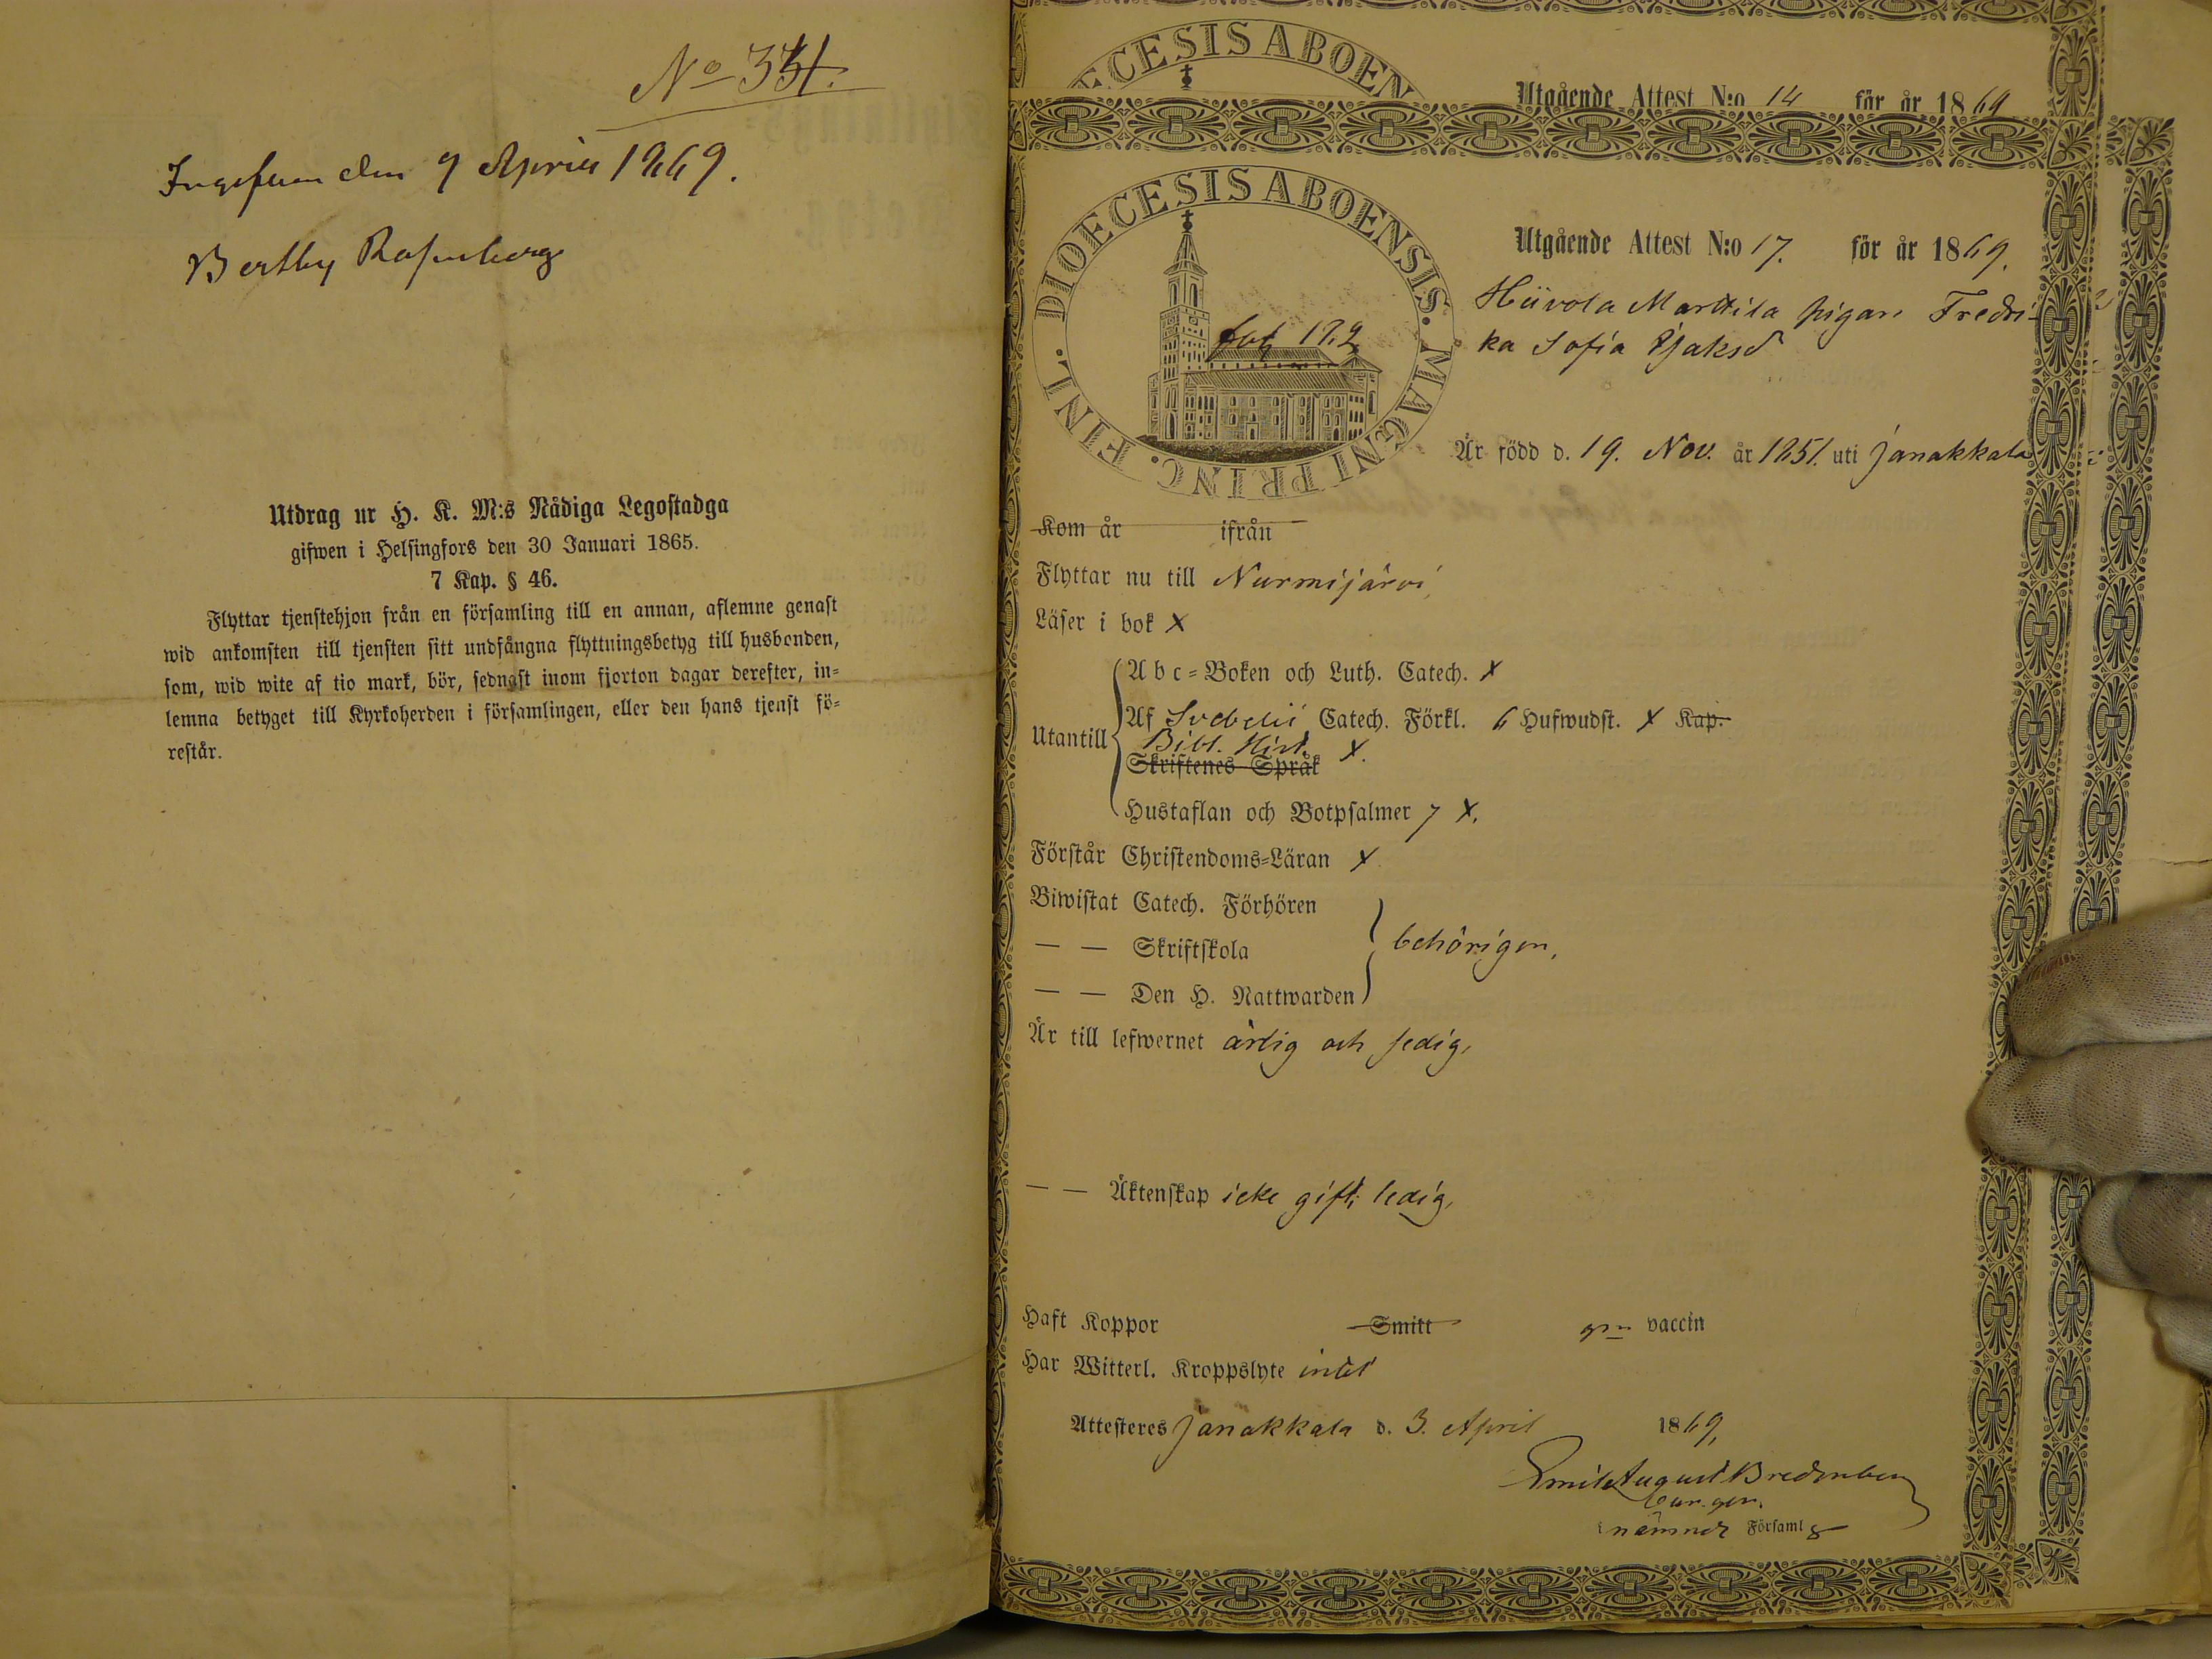 No 331.
den 9 April 1869.
Utdrag ur H. K. M:s Nådiga Legostadga
gifwen i Helsingfors den 30 Januari 1865.
7 Kap. § 46.
Flyttar tjenstehjon från en församling till en annan, aflemne genast
wid ankomsten till tjensten sitt undfångna flyttningsbetyg till husbonden,
som, wid wite af tio mark, bör, sednast inom fjorton dagar derefter, in-
lemna betyget till Kyrkoherden i församlingen, eller den hans tjenst fö-
restår.
DIOECESIS ABOEN
Utgående Attest N:o 14 för år 1869
DIOECESIS ABOENSIS. MAGNI PRINC. FINL.
Utgående Attest N:o 17. för år 1869.
Marttila pigan Fredri-
ka Sofia
Är född d. 19. Nov. år 1851. uti Janakkala
Kom år ifrån
Flyttar nu till Nurmijärvi
Läser i bok X
Utantill
A b c-Boken och Luth. Catech. X
Af Svebelii Catech. Förkl. 6 Hufwudst. X Kap.
Bibl. Hist. X.
Skriftenes Språk
Hustaflan och Botpsalmer 7 X.
Förstår Christendoms-Läran X
Biwistat Catech. Förhören
— — Skriftskola
behörigen.
— — Den H. Nattwarden
Är till lefwernet ärlig och sedig,
— — Äktenskap icke gift; ledig,
Haft Koppor Smitt gm vaccin
Har Witterl. Kroppslyte intet
Attesteres Janakkala d. 3. April 1869,
Emil August
nämnde Församl